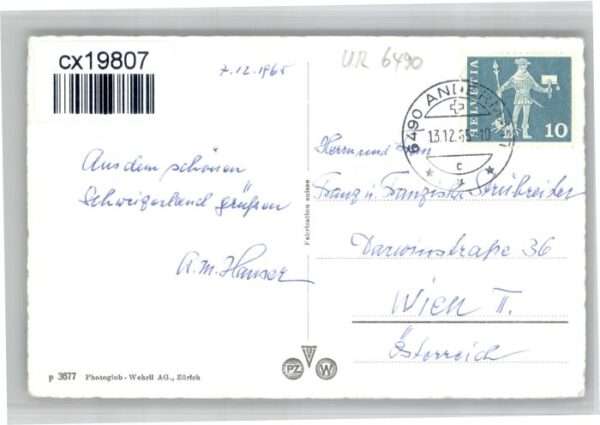 cx19807
7.12.1965
UR 6490
HELVETIA
10
6490 ANDERMATT
13.12.65-10
c
Aus dem schönen
Schweizerland grüssen
A. M. Hauser
Fabrication suisse
Herrn und Frau
Franz u. Franziska Strübreiter
Darwinstraße 36
Wien II.
Österreich
p 3677 Photoglob-Wehrli AG., Zürich
PZ
W